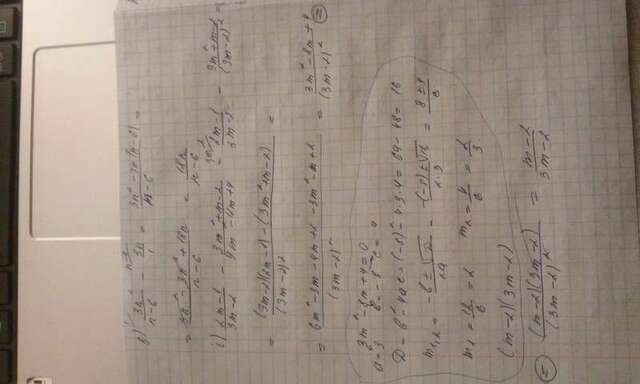 в) 3n²/(n-6) - 3n/1 = (3n² - 3n(n-6))/(n-6) =
= (3n² - 3n² + 18n)/(n-6) = 18n/(n-6)
(2m-1)/(3m-2) - (3m²+m-2)/(9m²-12m+4) = (2m-1)/(3m-2) - (3m²+m-2)/(3m-2)² =
= ((3m-2)(2m-1) - (3m²+m-2))/(3m-2)² =
= (6m² - 3m - 4m + 2 - 3m² - m + 2)/(3m-2)² = (3m² - 8m + 4)/(3m-2)² =
3m² - 8m + 4 = 0
a = 3 b = -8 c = 4
D = b² - 4ac = (-8)² - 4·3·4 = 64 - 48 = 16
m₁,₂ = (-b ± √D)/2a = (-(-8) ± √16)/2·3 = (8 ± 4)/6
m₁ = 12/6 = 2 m₂ = 4/6 = 2/3
(m-2)(3m-2)
= (m-2)(3m-2)/(3m-2)² = (m-2)/(3m-2)